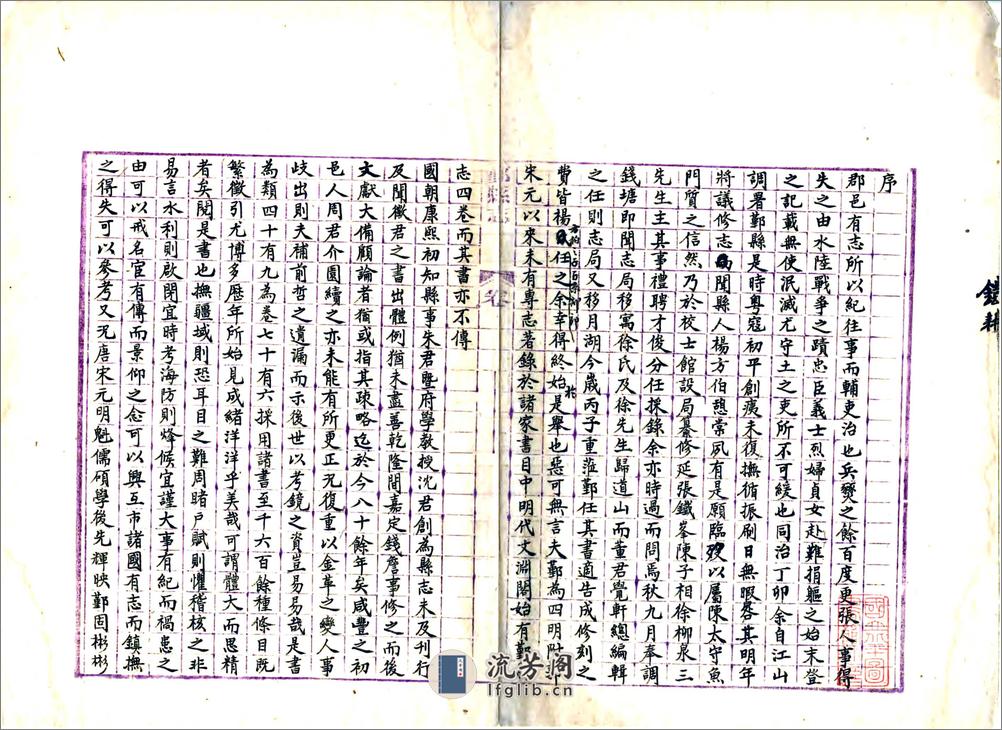 序
郡邑有志所以紀往事而輔吏治也兵燹之餘百度更張人事得
失之由水陸戰爭之蹟忠臣義士烈婦貞女赴難捐軀之始末登
之記載無使泯滅尤守土之吏所不可緩也同治丁卯余自江山
調署鄞縣是時粤寇初平創痍未復撫循振刷日無暇晷其明年
將議修志聞縣人楊方伯憩棠夙有是願臨歿以屬陳太守魚
門質之信然乃於校士館設局纂修延張鐵峯陳子相徐柳泉三
先生主其事禮聘才俊分任採錄余亦時過而問焉秋九月奉調
錢塘即聞志局移寓徐氏及徐先生歸道山而董君覺軒總編輯
之任則志局又移月湖今歲丙子重蒞鄞任其書適告成修刻之
費皆楊任之余幸得終始是舉也惡可無言夫鄞為四明附郭
宋元以來未有專志著錄於諸家書目中明代文淵閣始有鄞
志四卷而其書亦不傳
國朝康熙初知縣事朱君曁府學教授沈君創為縣志未及刊行
及聞徵君之書出體例猶未盡善乾隆間嘉定錢詹事修之而後
文獻大備顧論者猶或指其疎略迄於今八十餘年矣咸豐之初
邑人周君介園續之亦未能有所更正兄復重以金革之變人事
歧出則夫補前哲之遺漏而示後世以考鏡之資豈易易哉是書
為類四十有九為卷七十有六採用諸書至千六百餘種條目既
繁徵引尤博多歷年所始見成緒洋洋乎美哉可謂體大而思精
者矣閱是書也撫疆域則恐耳目之難周睹戶賦則懼稽核之非
易言水利則啟閉宜時考海防則烽候宜謹大事有紀而禍患之
由可以戒名宦有傳而景仰之念可以興互市諸國有志而鎮撫
之得失可以參考又况唐宋元明魁儒碩學後先輝映鄞固彬彬
流芳阁
lfglib.cn